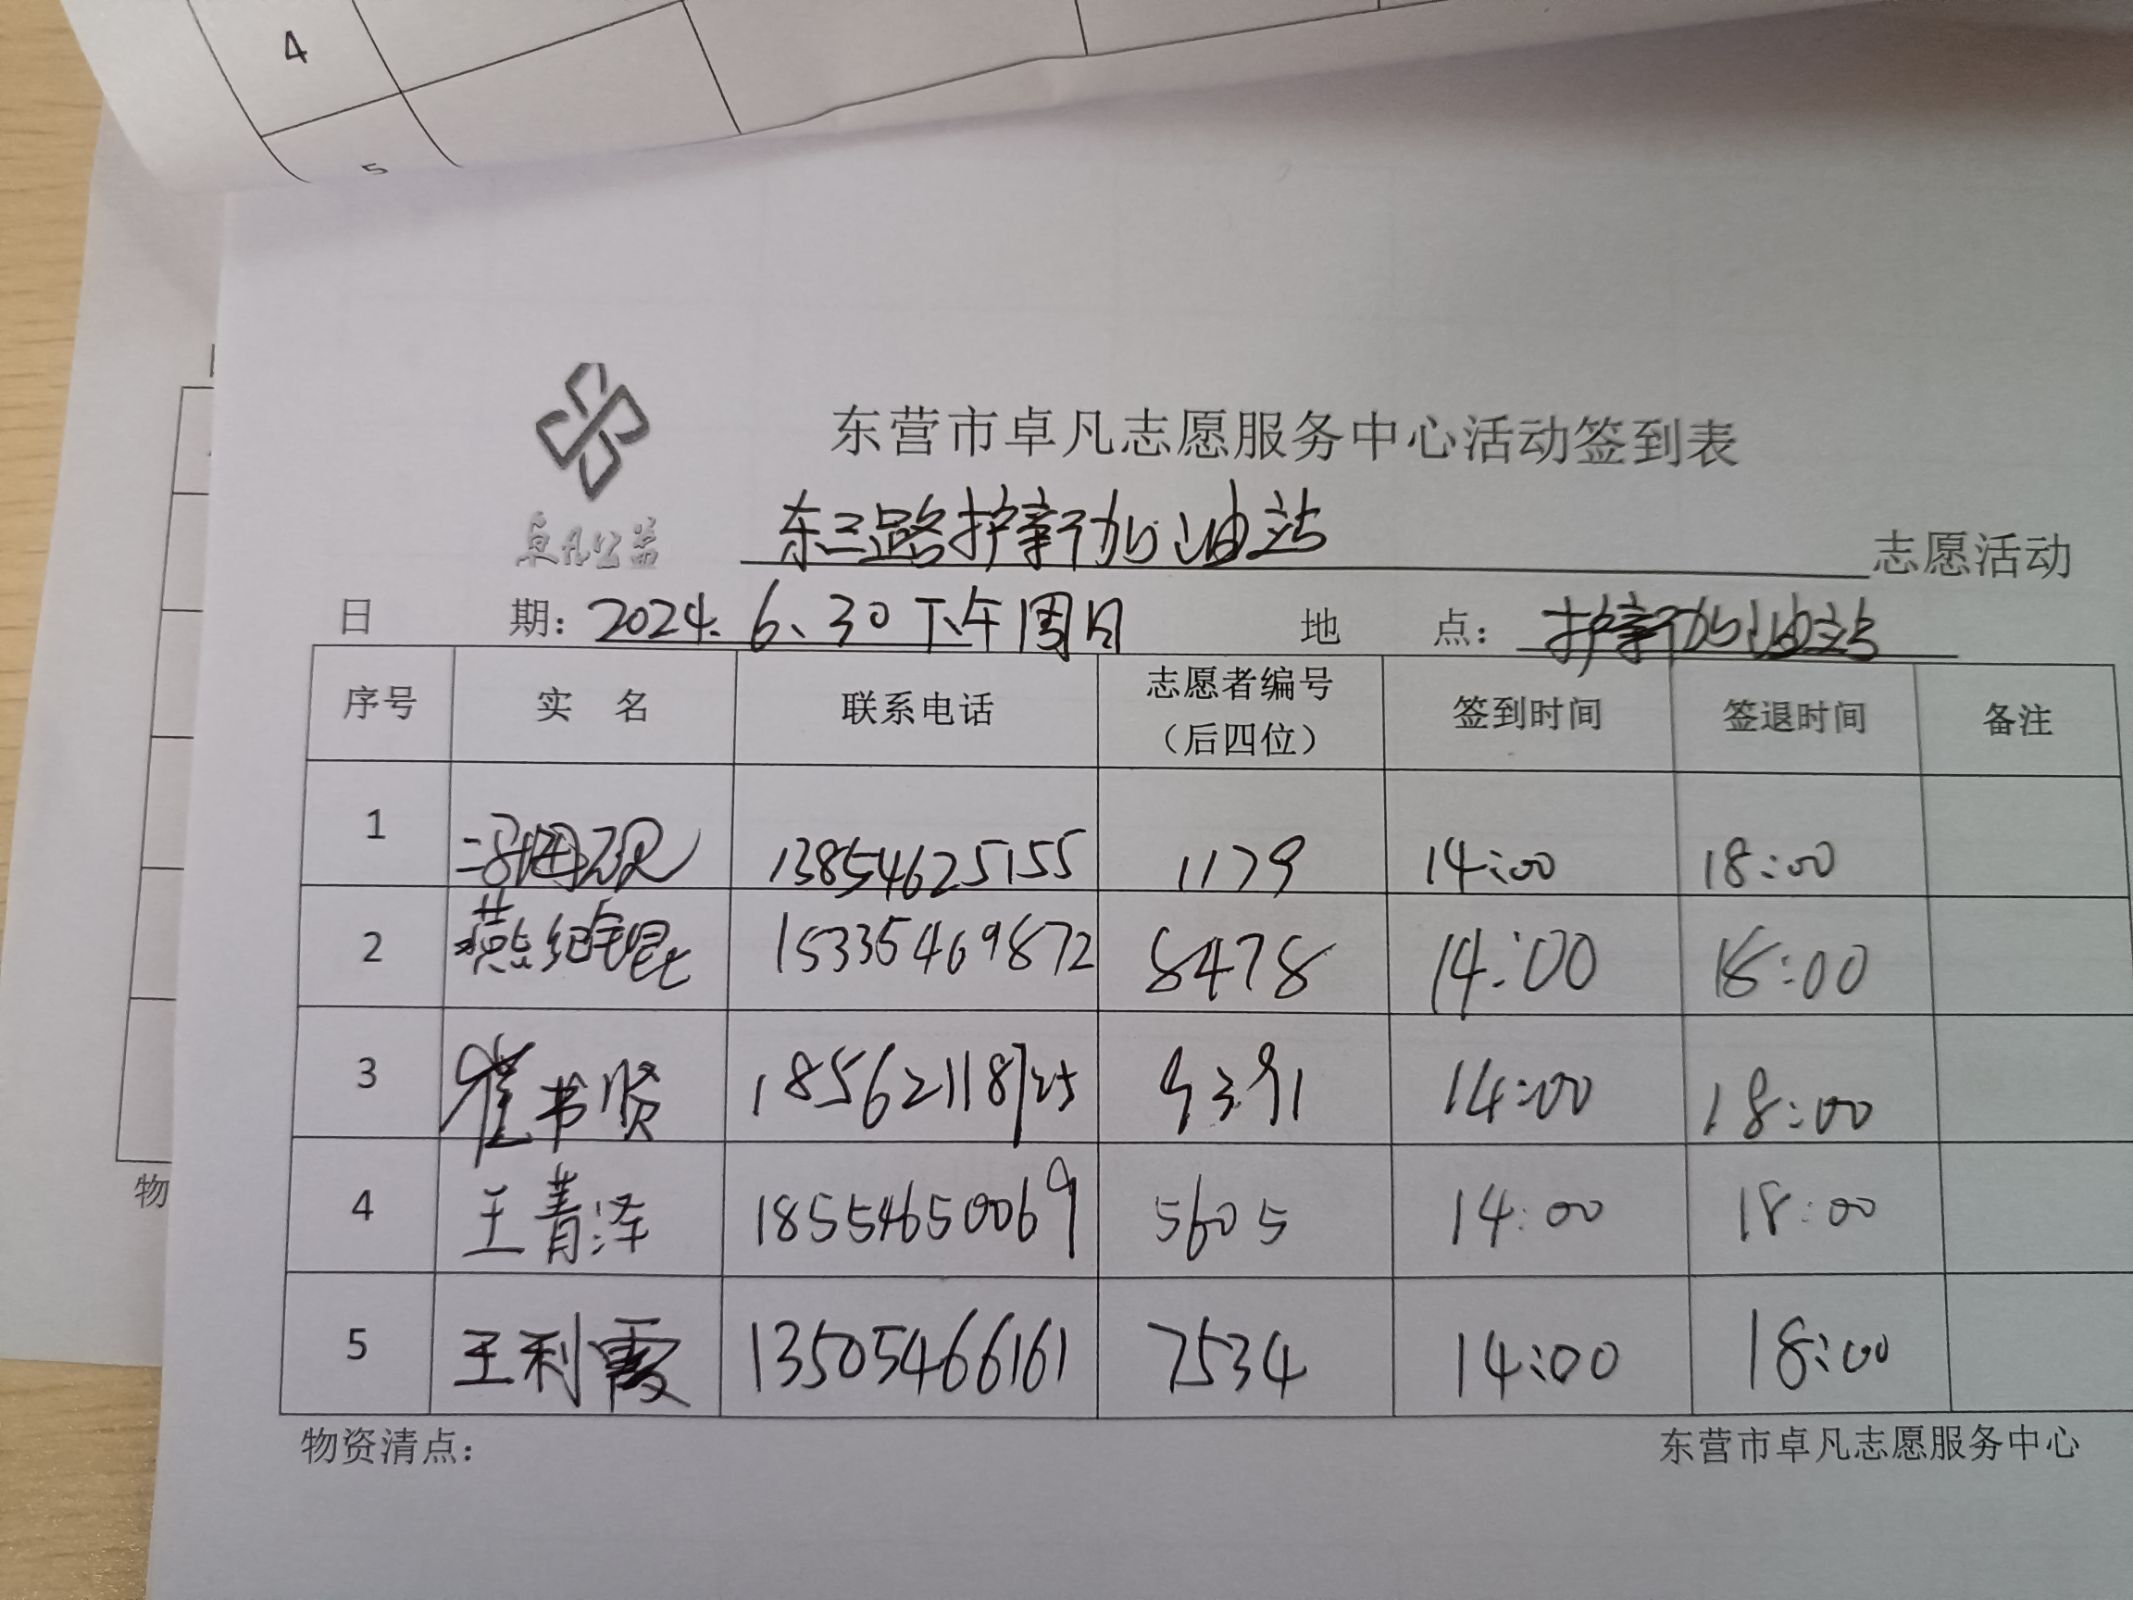 4
5
东营市卓凡志愿服务中心活动签到表
卓凡公益
东三路护新加油站 志愿活动
日 期: 2024.6.30下午周日 地 点: 护新加油站
序号 实 名 联系电话 志愿者编号（后四位） 签到时间 签退时间 备注
1 13854625155 1179 14:00 18:00
2 燕 15335469872 8478 14:00 18:00
3 崔书贤 18562118725 9391 14:00 18:00
4 王菁泽 18554650069 5605 14:00 18:00
5 王利霞 13505466161 7534 14:00 18:00
物资清点: 东营市卓凡志愿服务中心
物